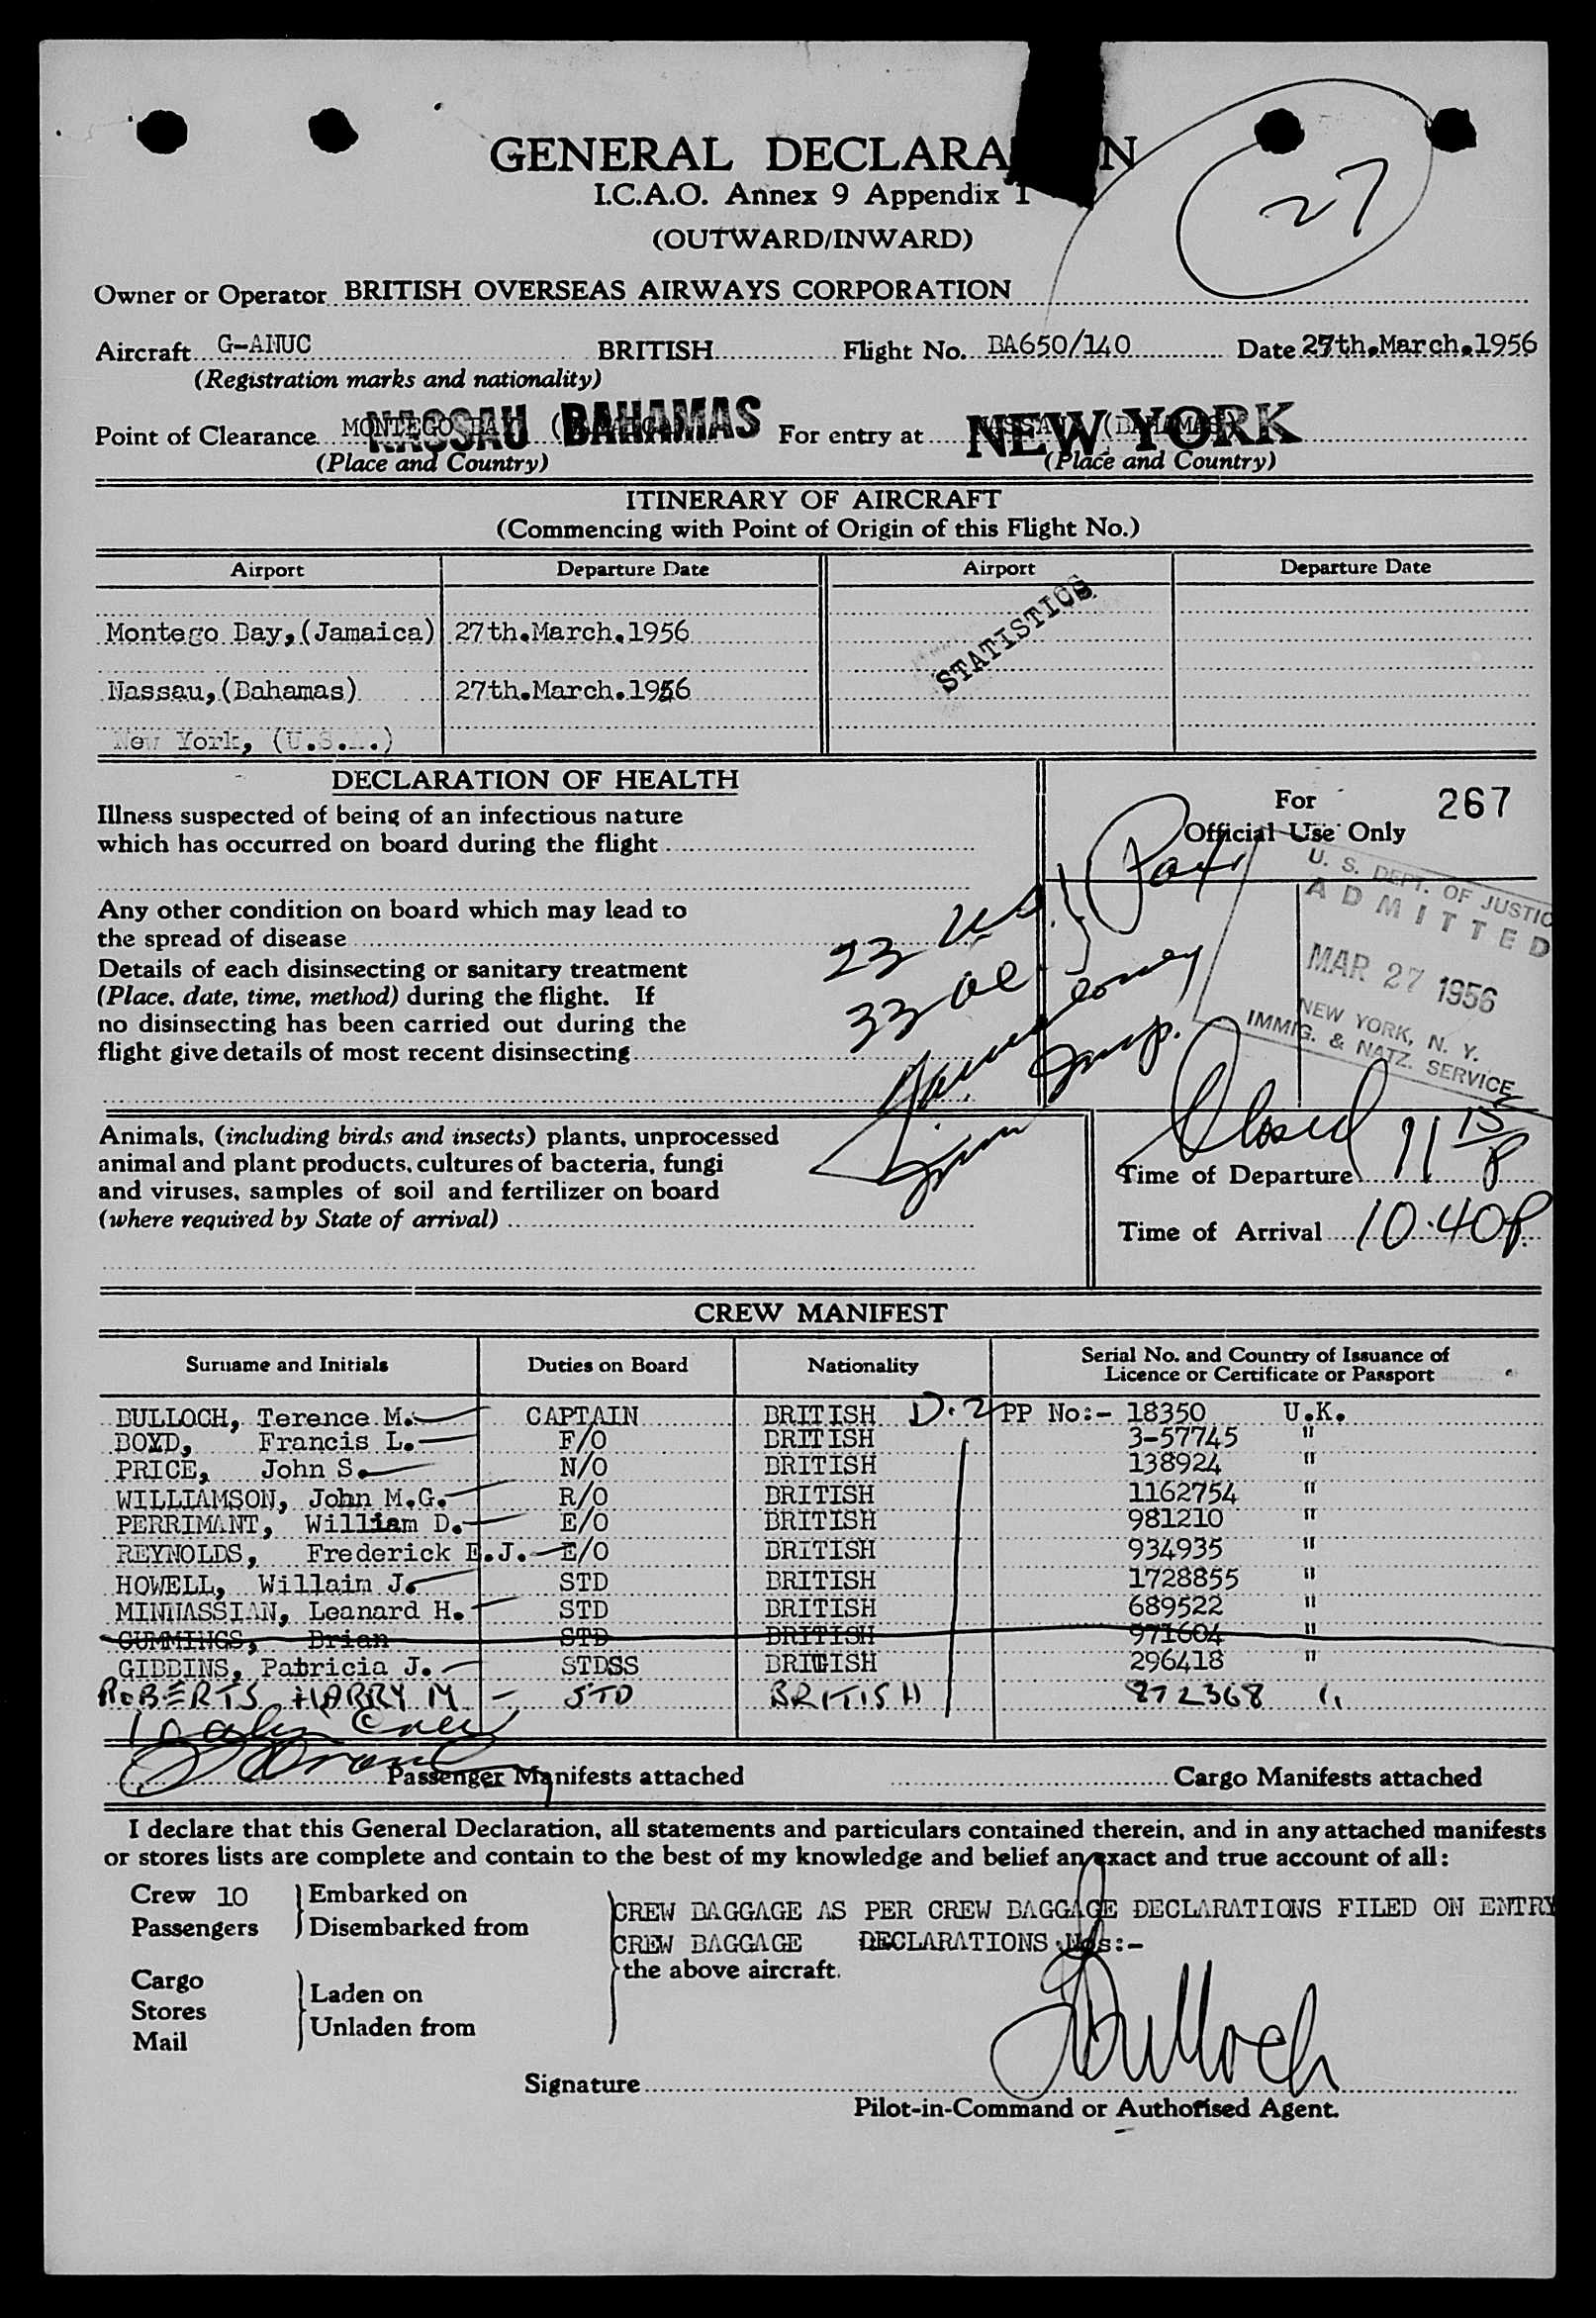 GENERAL DECLARA N
I.C.A.O. Annex 9 Appendix 1
(OUTWARD/INWARD)
27
Owner or Operator BRITISH OVERSEAS AIRWAYS CORPORATION
Aircraft G-ANUC BRITISH Flight No. BA650/140 Date 27th.March.1956
(Registration marks and nationality)
Point of Clearance MONTEGO BAY NASSAU BAHAMAS For entry at NASSAU (BAHAMAS) NEW YORK
(Place and Country) (Place and Country)
ITINERARY OF AIRCRAFT
(Commencing with Point of Origin of this Flight No.)
Airport Departure Date Airport Departure Date
STATISTICS
Montego Bay,(Jamaica) 27th.March.1956
Nassau,(Bahamas) 27th.March.1956
New York, (U.S.A.)
DECLARATION OF HEALTH
Illness suspected of being of an infectious nature
which has occurred on board during the flight
Any other condition on board which may lead to
the spread of disease
Details of each disinsecting or sanitary treatment
(Place, date, time, method) during the flight. If
no disinsecting has been carried out during the
flight give details of most recent disinsecting
For 267
Official Use Only
U. S. DEPT. OF JUSTIC
ADMITTED
MAR 27 1956
NEW YORK, N. Y.
IMMIG. & NATZ. SERVICE
23 US
33 al
Pax
Insp.
Animals, (including birds and insects) plants, unprocessed
animal and plant products, cultures of bacteria, fungi
and viruses, samples of soil and fertilizer on board
(where required by State of arrival)
Closed 11 15 P
Time of Departure
Time of Arrival 10.40P
CREW MANIFEST
Surname and Initials Duties on Board Nationality Serial No. and Country of Issuance of
Licence or Certificate or Passport
BULLOCH, Terence M. CAPTAIN BRITISH D.2 PP No:- 18350 U.K.
BOYD, Francis L. F/O BRITISH 3-57745 "
PRICE, John S. N/O BRITISH 138924 "
WILLIAMSON, John M.G. R/O BRITISH 1162754 "
PERRIMANT, William D. E/O BRITISH 981210 "
REYNOLDS, Frederick E.J. E/O BRITISH 934935 "
HOWELL, Willaim J. STD BRITISH 1728855 "
MINNASSIAN, Leanard H. STD BRITISH 689522 "
CUMMINGS, Brian STD BRITISH 971604 "
GIBBINS, Patricia J. STDSS BRITISH 296418 "
ROBERTS HARRY M - STD BRITISH 872368 "
Passenger Manifests attached Cargo Manifests attached
I declare that this General Declaration, all statements and particulars contained therein, and in any attached manifests
or stores lists are complete and contain to the best of my knowledge and belief an exact and true account of all:
Crew 10 Embarked on
Passengers Disembarked from
CREW BAGGAGE AS PER CREW BAGGAGE DECLARATIONS FILED ON ENTRY
CREW BAGGAGE DECLARATIONS Nos:-
the above aircraft.
Cargo
Stores
Mail
Laden on
Unladen from
Signature TBulloch
Pilot-in-Command or Authorised Agent.